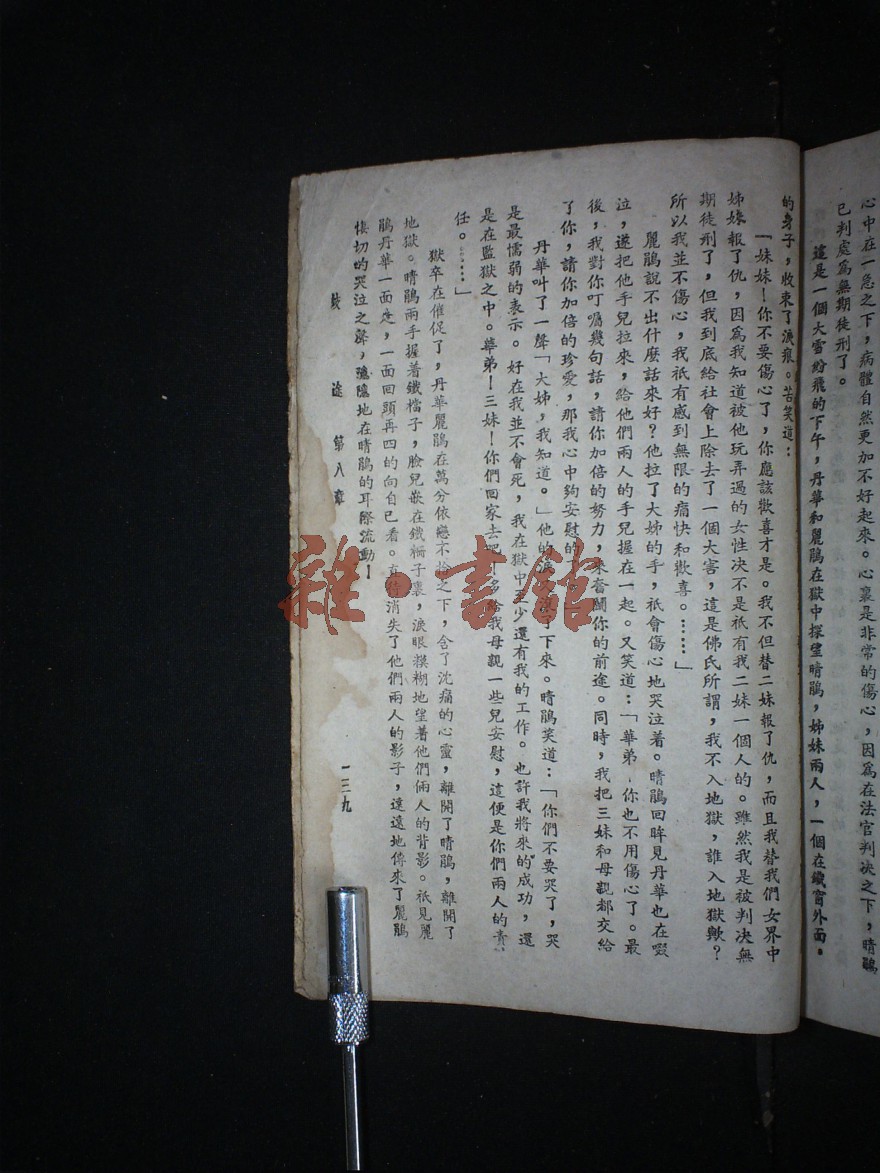 心中在一急之下，病體自然更加不好起來。心裏是非常的傷心，因爲在法官判决之下，晴鵑
已判處爲無期徒刑了。
這是一個大雪紛飛的下午，丹華和麗鵑在獄中探望晴鵑，姊妹兩人，一個在鐵窗外面。
的身子，收束了淚痕。苦笑道：
「妹妹！你不要傷心了，你應該歡喜才是。我不但替二妹報了仇，而且我替我們女界中
姊妹報了仇，因爲我知道被他玩弄過的女性决不是祇有我二妹一個人的。雖然我是被判决無
期徒刑了，但我到底給社會上除去了一個大害，這是佛氏所謂，我不入地獄，誰入地獄歟？
所以我並不傷心，我祇有感到無限的痛快和歡喜。……」
麗鵑說不出什麼話來好？他拉了大姊的手，祇會傷心地哭泣着。晴鵑回眸見丹華也在啜
泣，遂把他手兒拉來，給他們兩人的手兒握在一起。又笑道：「華弟，你也不用傷心了。最
後，我對你叮囑幾句話，請你加倍的努力，來奮鬭你的前途。同時，我把三妹和母親都交給
了你，請你加倍的珍愛，那我心中夠安慰的
丹華叫了一聲「大姊，我知道。」他的淚 下來。晴鵑笑道：「你們不要哭了，哭
是最懦弱的表示。好在我並不會死，我在獄中 少還有我的工作。也許我將來的成功，還
是在監獄之中。華弟！三妹！你們回家去吧！多給我母親一些兒安慰，這便是你們兩人的責
任。……」
獄卒在催促了，丹華麗鵑在萬分依戀不捨之下，含了沈痛的心靈，離開了晴鵑，離開了
地獄。晴鵑兩手握着鐵檔子，臉兒嵌在鐵柵子裏，淚眼模糊地望着他們倆人的背影。祇見麗
鵑丹華一面走，一面回頭再四的向自己看。直待消失了他們兩人的影子，遠遠地傳來了麗鵑
悽切的哭泣之聲，隱隱地在晴鵑的耳際流動！
歧途 第八章
一三九
雜·書館